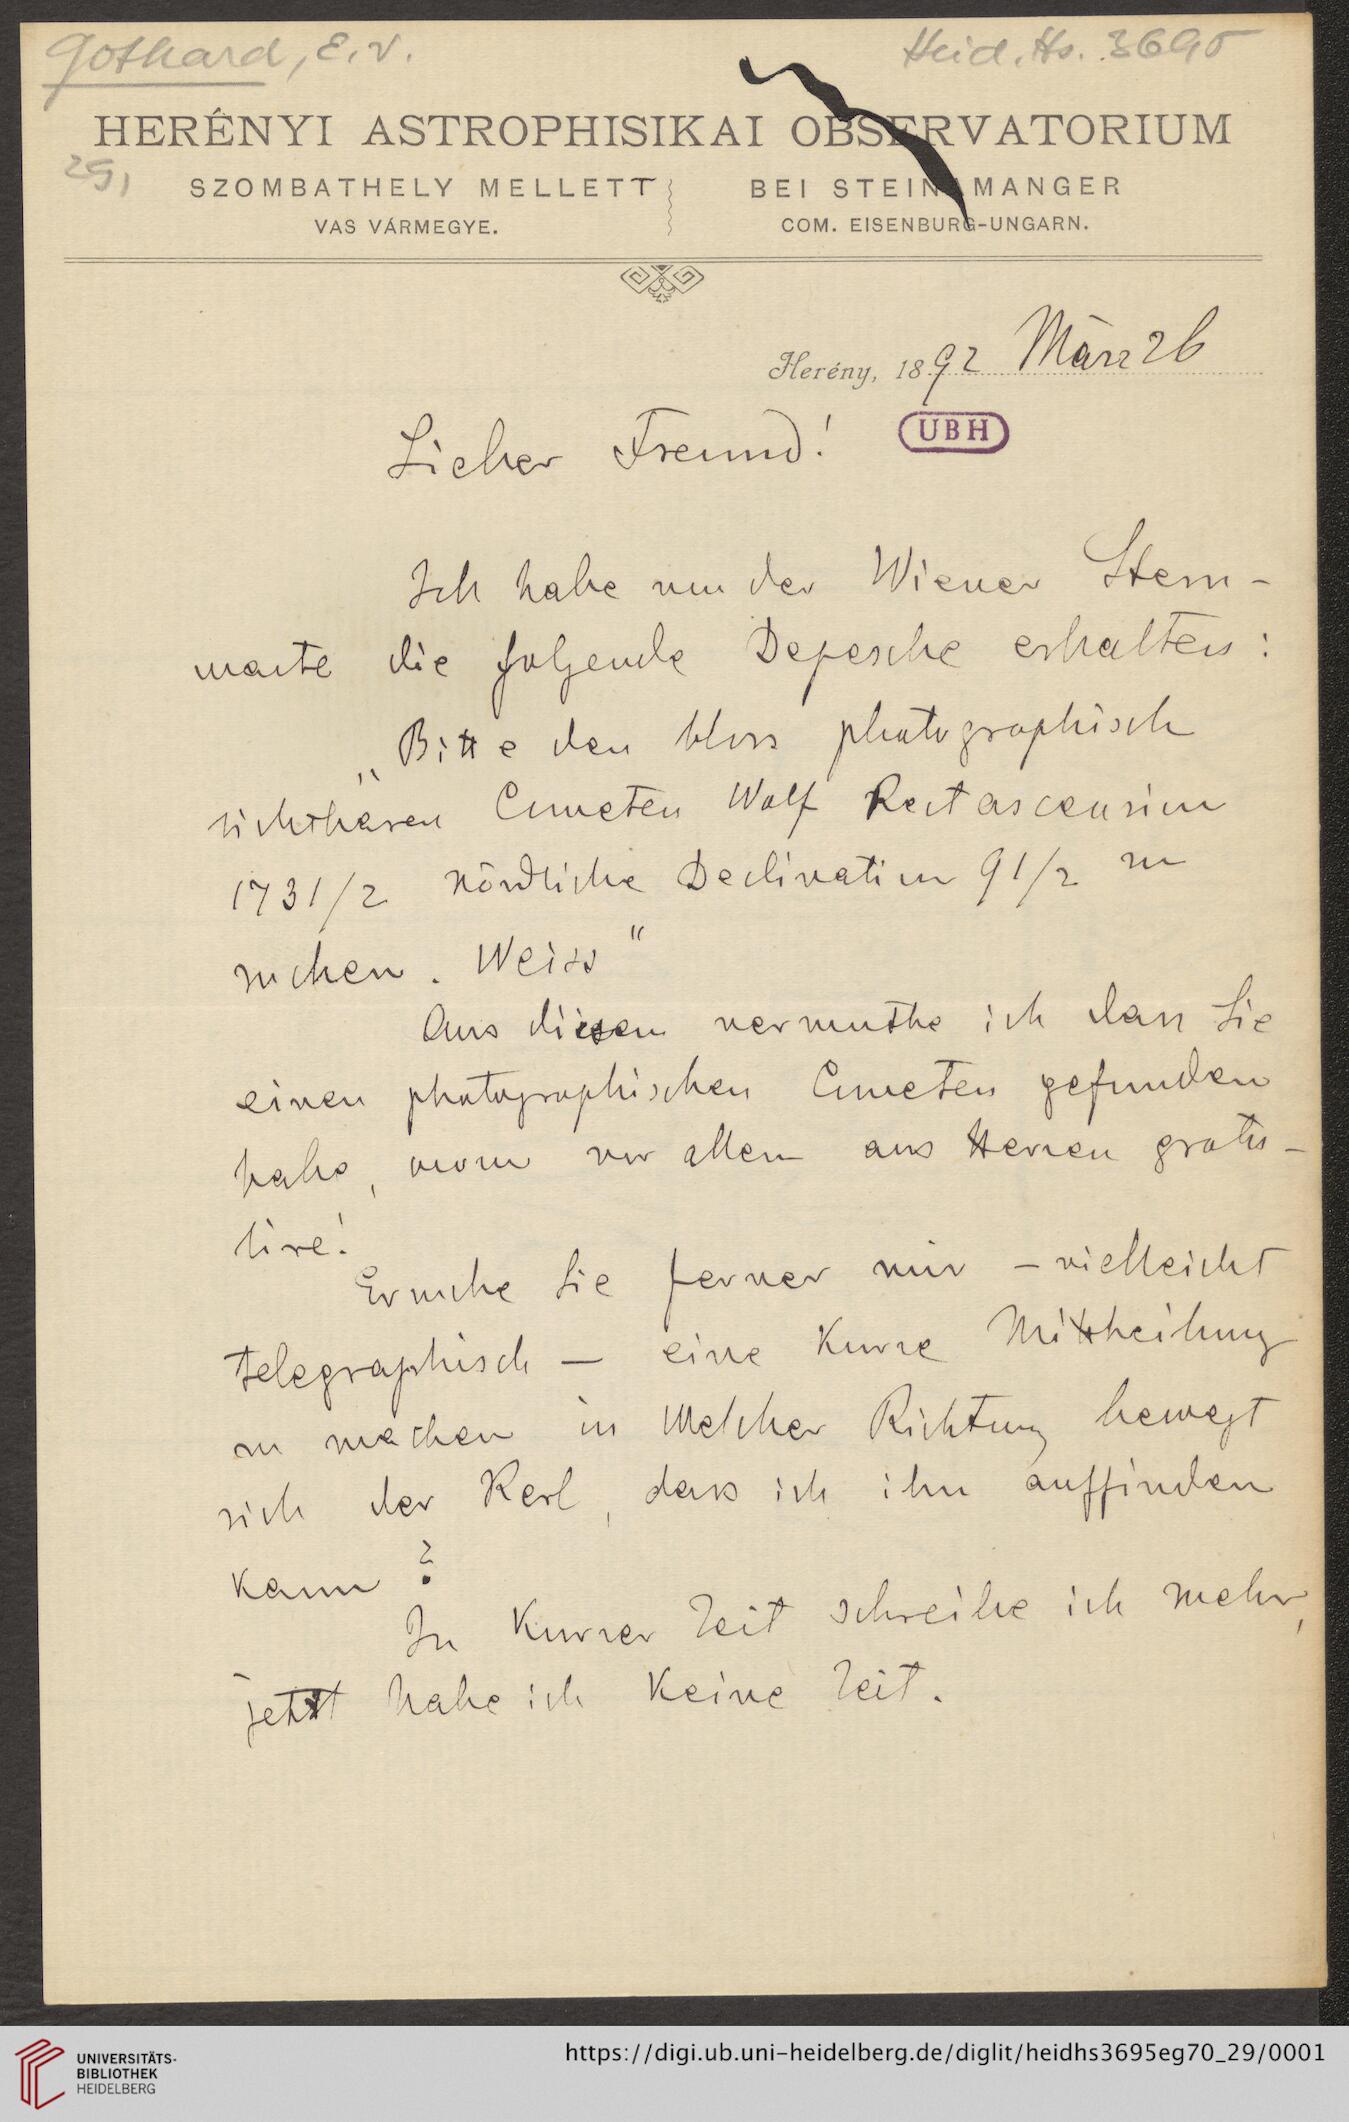 Gothard, E. v.
Heid. Hs. 3695
HERÉNYI ASTROPHISIKAI OBSERVATORIUM
29,
SZOMBATHELY MELLETT
BEI STEINAMANGER
VAS VÁRMEGYE.
COM. EISENBURG-UNGARN.
Herény, 1892 März 26
UBH
Lieber Freund!
Ich habe von der Wiener Stern-
warte die folgende Depesche erhalten:
„Bitte den bloss photographisch
sichtbaren Cometen Wolf Rectascension
173 1/2 nördliche Declination 9 1/2 zu
suchen. Weiss“
Aus diesen vermuthe ich dass Sie
einen photographischen Cometen gefunden
habe, wozu vor allem aus Herzen gratu-
lire!
Ersuche Sie ferner mir – vielleicht
telegraphisch – eine kurze Mittheilung
zu machen in welcher Richtung bewegt
sich der Kerl, dass ich ihn auffinden
kann?
In kurzer Zeit schreibe ich mehr,
jetzt habe ich keine Zeit.
UNIVERSITÄTS-
BIBLIOTHEK
HEIDELBERG
https://digi.ub.uni-heidelberg.de/diglit/heidhs3695eg70_29/0001